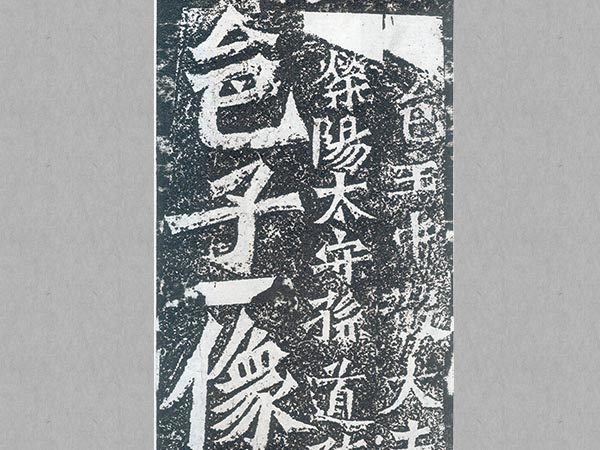 邑主中散大夫
滎陽太守孫道
邑子像